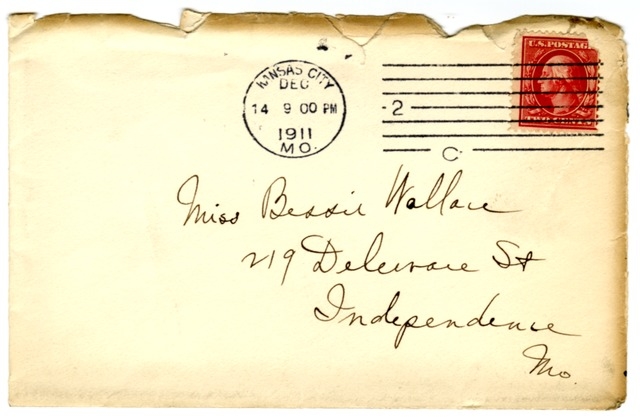 KANSAS CITY
DEC
14 9 00 PM
1911
MO.
2
C
U.S. POSTAG
Miss Bessie Wallace
219 Deleware St
Independence
Mo.